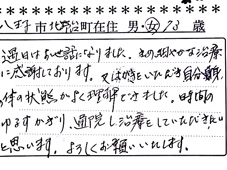 八王子市北野町在住 男・女 73 歳
過日はお世話になりました。きめ細かな治療
に感謝しております。又お話をいただき自分自身
の体の状態がよく理解できました。時間の
ゆるすかぎり、通院し治療をしていただきたい
と思います。よろしくお願いいたします。